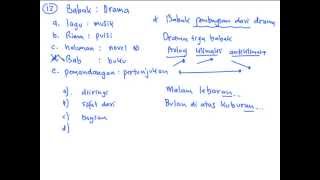 13 Babak : Drama
a. lagu : musik
b. Rima : puisi
c. halaman : novel
d. Bab : buku
e. pemandangan : pertunjukan
* Babak pembagian dari drama
Drama tiga babak
Prolog klimaks antiklimaks
a). diiringi
b). sifat dari
c) bagian
d)
Malam lebaran...
Bulan di atas kuburan...